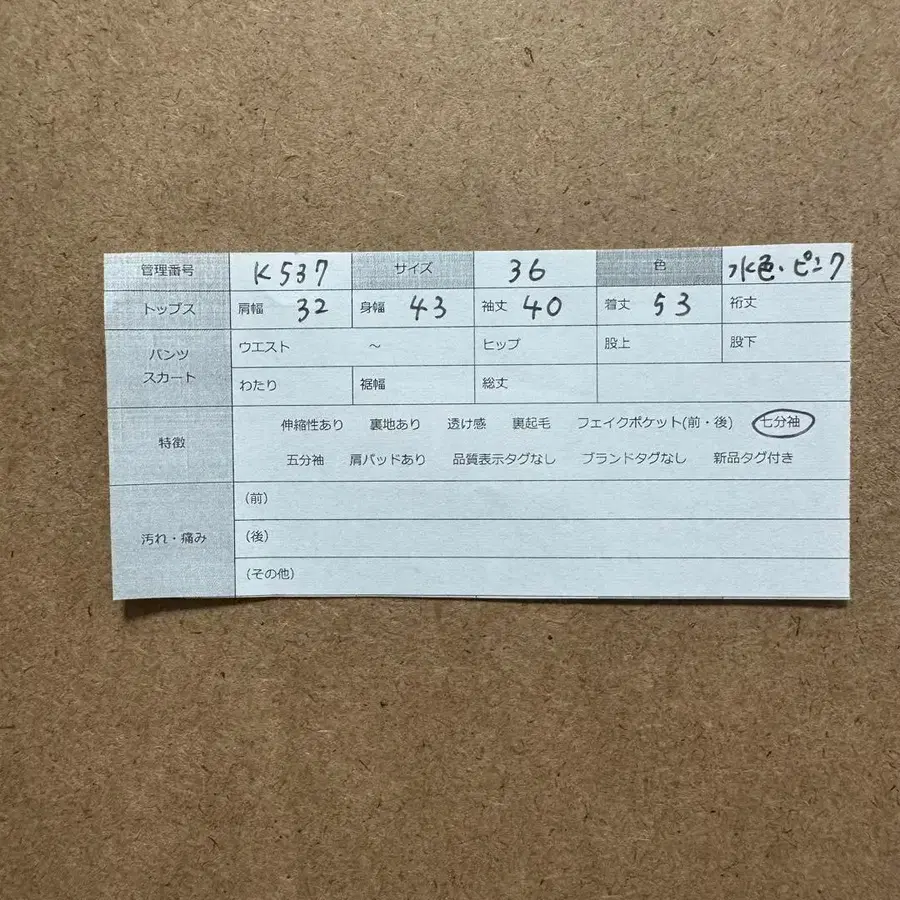 管理番号 K537 サイズ 36 色 水色・ピンク
トップス 肩幅 32 身幅 43 袖丈 40 着丈 53 裄丈
パンツ スカート ウエスト ～ ヒップ 股上 股下
わたり 裾幅 総丈
特徴 伸縮性あり 裏地あり 透け感 裏起毛 フェイクポケット(前・後) 七分袖
五分袖 肩パッドあり 品質表示タグなし ブランドタグなし 新品タグ付き
汚れ・痛み (前)
(後)
(その他)